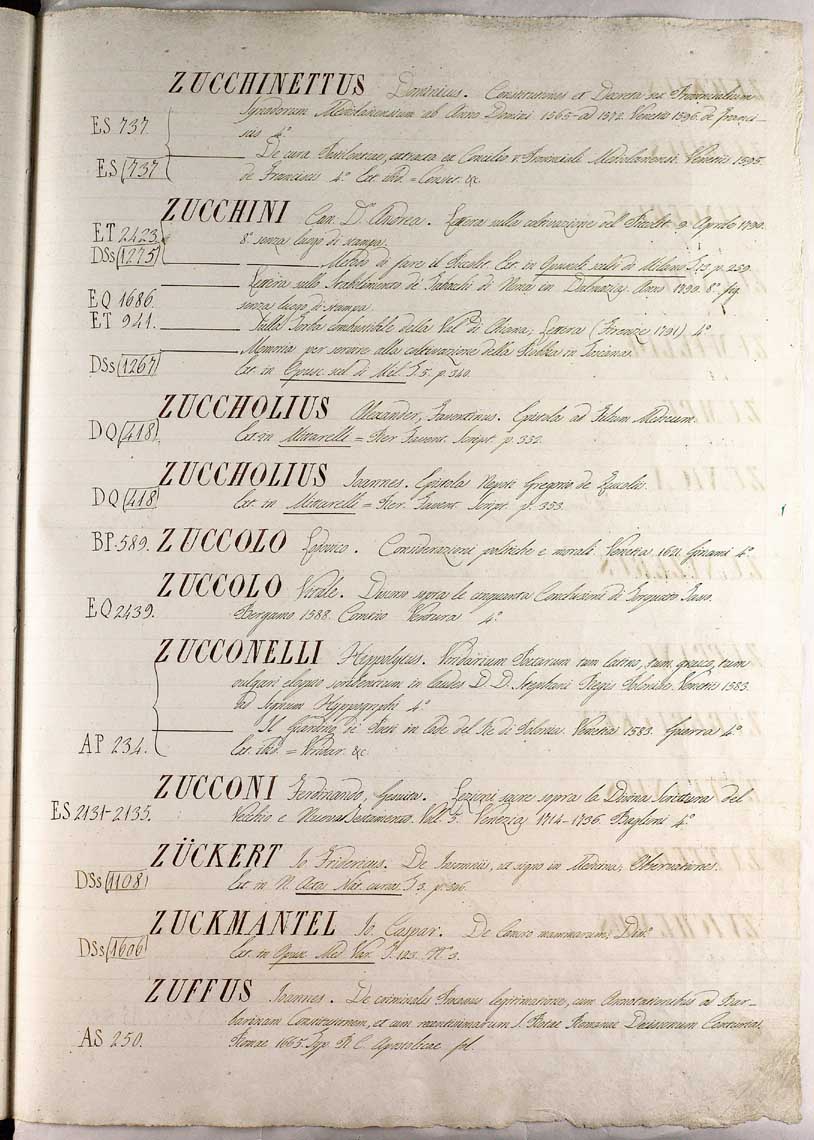 ZUCCHINETTUS Dominicus. Constitutiones et Decreta ex Provincialium
Synodorum Mediolanensium ab Anno Domini 1565 ad 1572. Venetiis 1596. de Francis-
ES 737. cus 4.°
De cura Pestilentiae, extracta ex Concilio V. Provinciali Mediolanensi. Venetiis 1595.
ES (737 de Franciscis 4.° Est ibid. = Conster. &c.
ZUCCHINI Can. D. Andrea. Lettera sulla coltivazione dell' 9 Aprile 1790.
ET 2423. 8.° senza luogo di stampa.
DSs (1275) Metodo di fare il Est. in Opuscoli scelti di Milano T. 13. p. 259.
Lettera sullo Stabilimento de Tabacchi di Nona in Dalmazia. Anno 1790. 8.° fig.
EQ 1686. senza luogo di stampa.
ET 941. Sulla Torba combustibile della Val di Chiana; Lettera (Firenze, 1791) 4.°
Memoria per servire alla coltivazione della Robbia in Toscana.
DSs (1267) Est. in Opusc. scel. di Mil. T. 5. p. 340.
ZUCCHOLIUS Alexander, Faventinus. Epistola ad Medicum.
DQ (418) Est. in Mittarelli = Rer. Favent. Script. p. 332.
ZUCCHOLIUS Ioannes. Epistola Nepoti Gregorio de Zuccolis.
DQ (418 Est. in Mittarelli = Rer. Favent. Script. p. 353.
BP. 589. ZUCCOLO Lodovico. Considerazioni politiche e morali. Venetia 1621. Ginami 4.°
ZUCCOLO Vitale. Discorso sopra le cinquanta Conclusioni di Torquato Tasso.
EQ 2439. Bergamo 1588. Comino Ventura 4.°
ZUCCONELLI Hippolytus. Viridarium Poetarum tum latino, tum graeco, tum
vulgari eloquio scribentium in laudes D. D. Stephani Regis Poloniae. Venetiis 1583.
ad signum Hyppogriphi 4.°
Il Giardino di Poeti in lode del Re di Polonia. Venetia 1583. Guerra 4.°
AP 234. Est. ibid. = Viridar. &c.
ZUCCONI Ferdinando, Gesuita. Lezioni sacre sopra la Divina Scrittura del
ES 2131-2135. Vecchio e Nuovo Testamento. Voll. 5. Venezia 1714-1736. Baglioni 4.°
ZÜCKERT Io. Fridericus. De Insomniis, ut signo in Medicina; Observationes.
DSs (1108) Est. in N. Acta Nat. curios. T. 3. p. 316.
ZUCKMANTEL Io. Caspar. De Cancro mammarum; Diss.
DSs (1606) Est. in Opusc. Med. Var. T. 123. N.° 3.
ZUFFUS Ioannes. De criminalis Processus legitimatione, cum Annotationibus ad Bar-
barinam Constitutionem, et cum recentissimarum S. Rotae Romanae Decisionum Centuria.
AS 250. Romae 1665. Typ. R. C. Apostolicae fol.